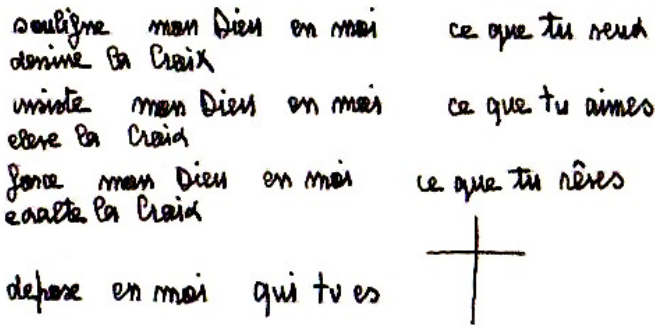 souligne mon Dieu en moi ce que tu veux
dessine la Croix
insiste mon Dieu en moi ce que tu aimes
élève la Croix
force mon Dieu en moi ce que tu rêves
exalte la Croix
dépose en moi qui tu es